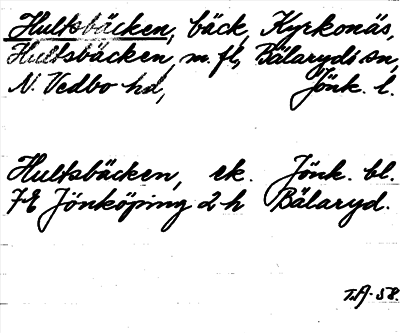 Hultsbäcken, bäck, Kyrkonäs,
Hultsbäcken, m. fl., Bälaryds sn,
N. Vedbo hd, Jönk. l.
Hultsbäcken, ek. Jönk. bl.
7E Jönköping 2h Bälaryd.
T.A-58.